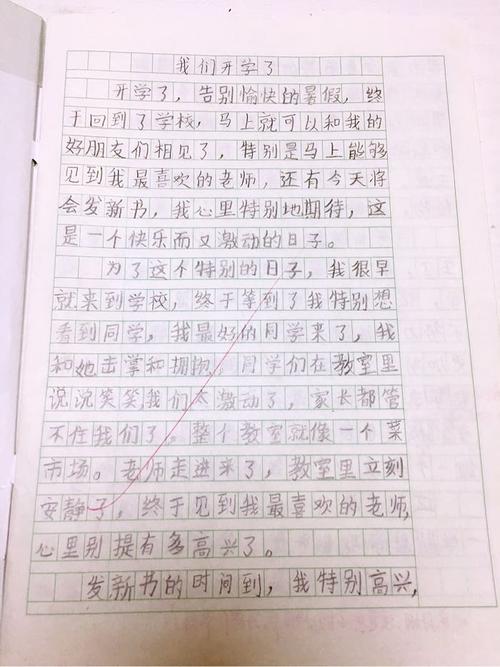 我们开学了
开学了，告别愉快的暑假，终
于回到了学校，马上就可以和我的
好朋友们相见了，特别是马上能够
见到我最喜欢的老师，还有今天将
会发新书，我心里特别地期待，这
是一个快乐而又激动的日子。
为了这个特别的日子，我很早
就来到学校，终于等到了我特别想
看到同学，我最好的同学来了，我
和她击掌和拥抱，同学们在教室里
说说笑笑我们太激动了，家长都管
不住我们了。整个教室就像一个菜
市场。老师走进来了，教室里立刻
安静了，终于见到我最喜欢的老师，
心里别提有多高兴了。
发新书的时间到，我特别高兴，